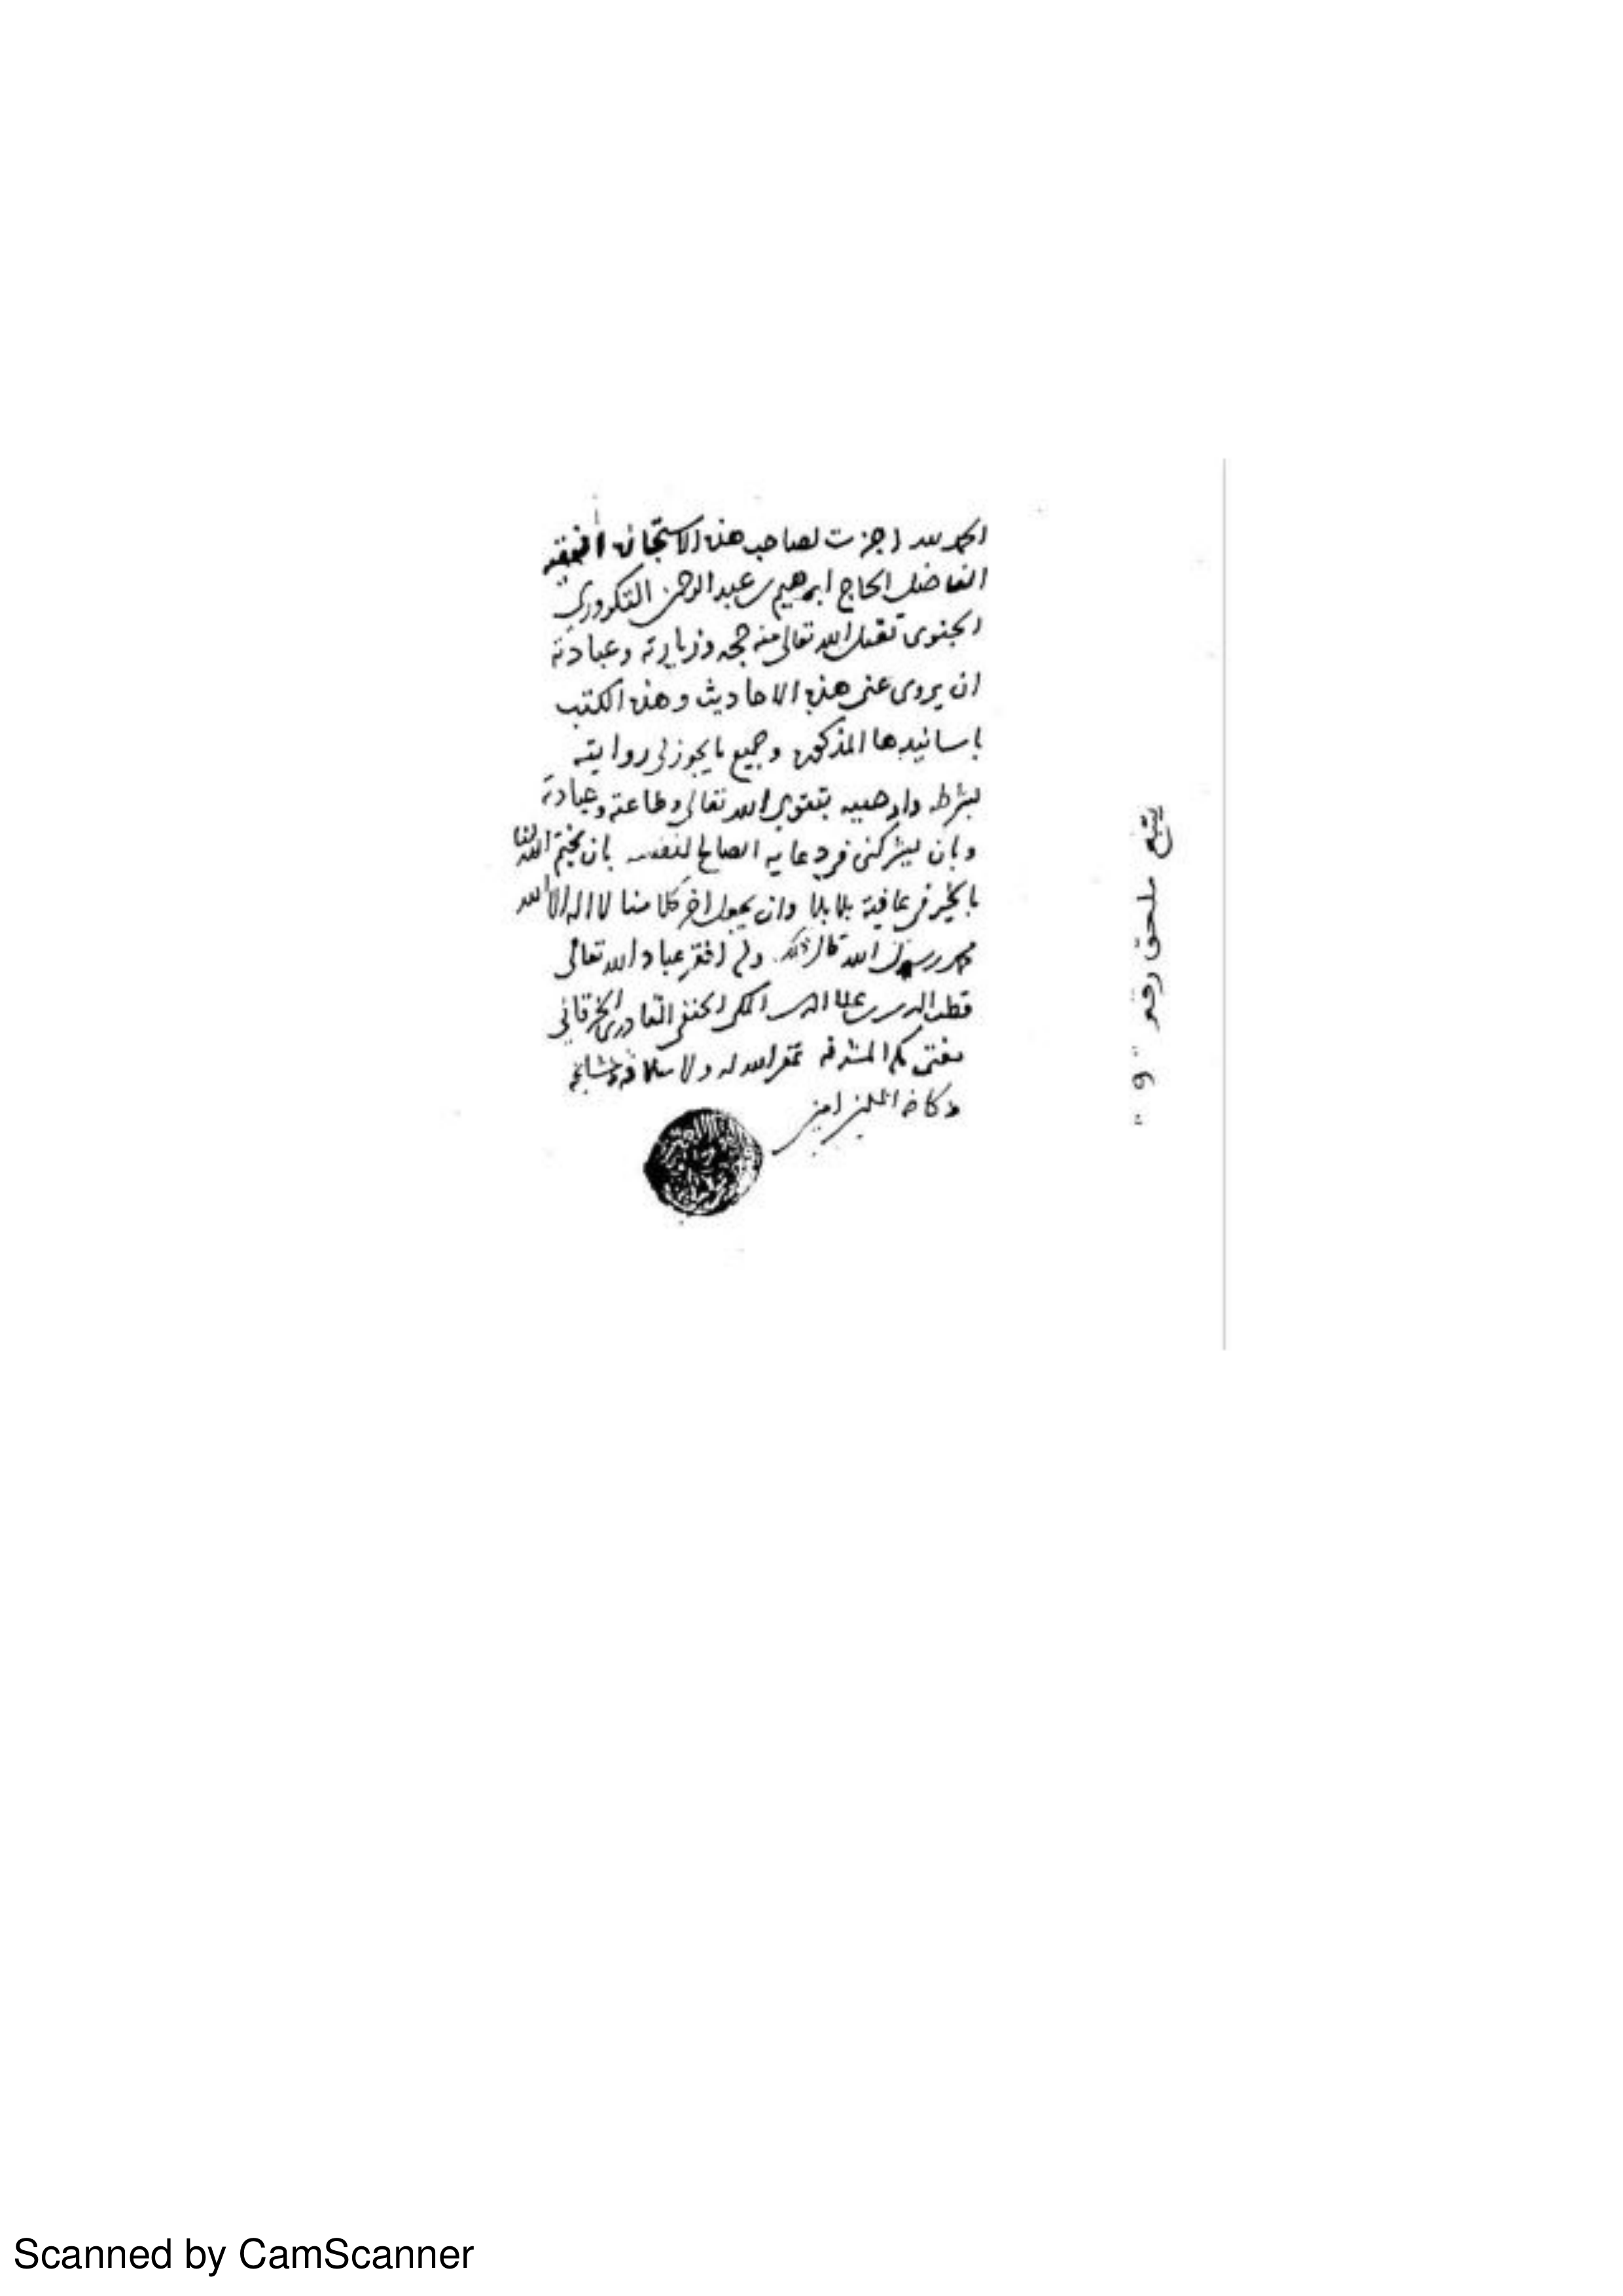 الحمد لله اجزت لصاحب هذه الاستجازة الفقيه
الفاضل الحاج ابرهيم بن عبد الرحمن التكروري
الجنوى تقبل الله تعالى منه حجه وزيارته وعبادته
ان يروى عنى هذه الاحاديث وهذه الكتب
باسانيدها المذكورة وجميع ما يجوز لى روايته
بشرطه واوصيه بتقوى الله تعالى وطاعته وعبادته
وبان يشركنى فى دعايه الصالح لنفسه بان يختم الله لنا
بالخير فى عافية بلا بلا وان يجعل اخر كلامنا لا اله الا الله
محمد رسول الله قال ذلك افقر عباد الله تعالى
قطب الدين بن علا الدين المكى الحنفى القادرى الخرقانى
مفتى مكة المشرفه غفر الله له ولاسلافه ومشايخه
وكافة المسلمين امين
يتبع ملحق رقم " و "
Scanned by CamScanner